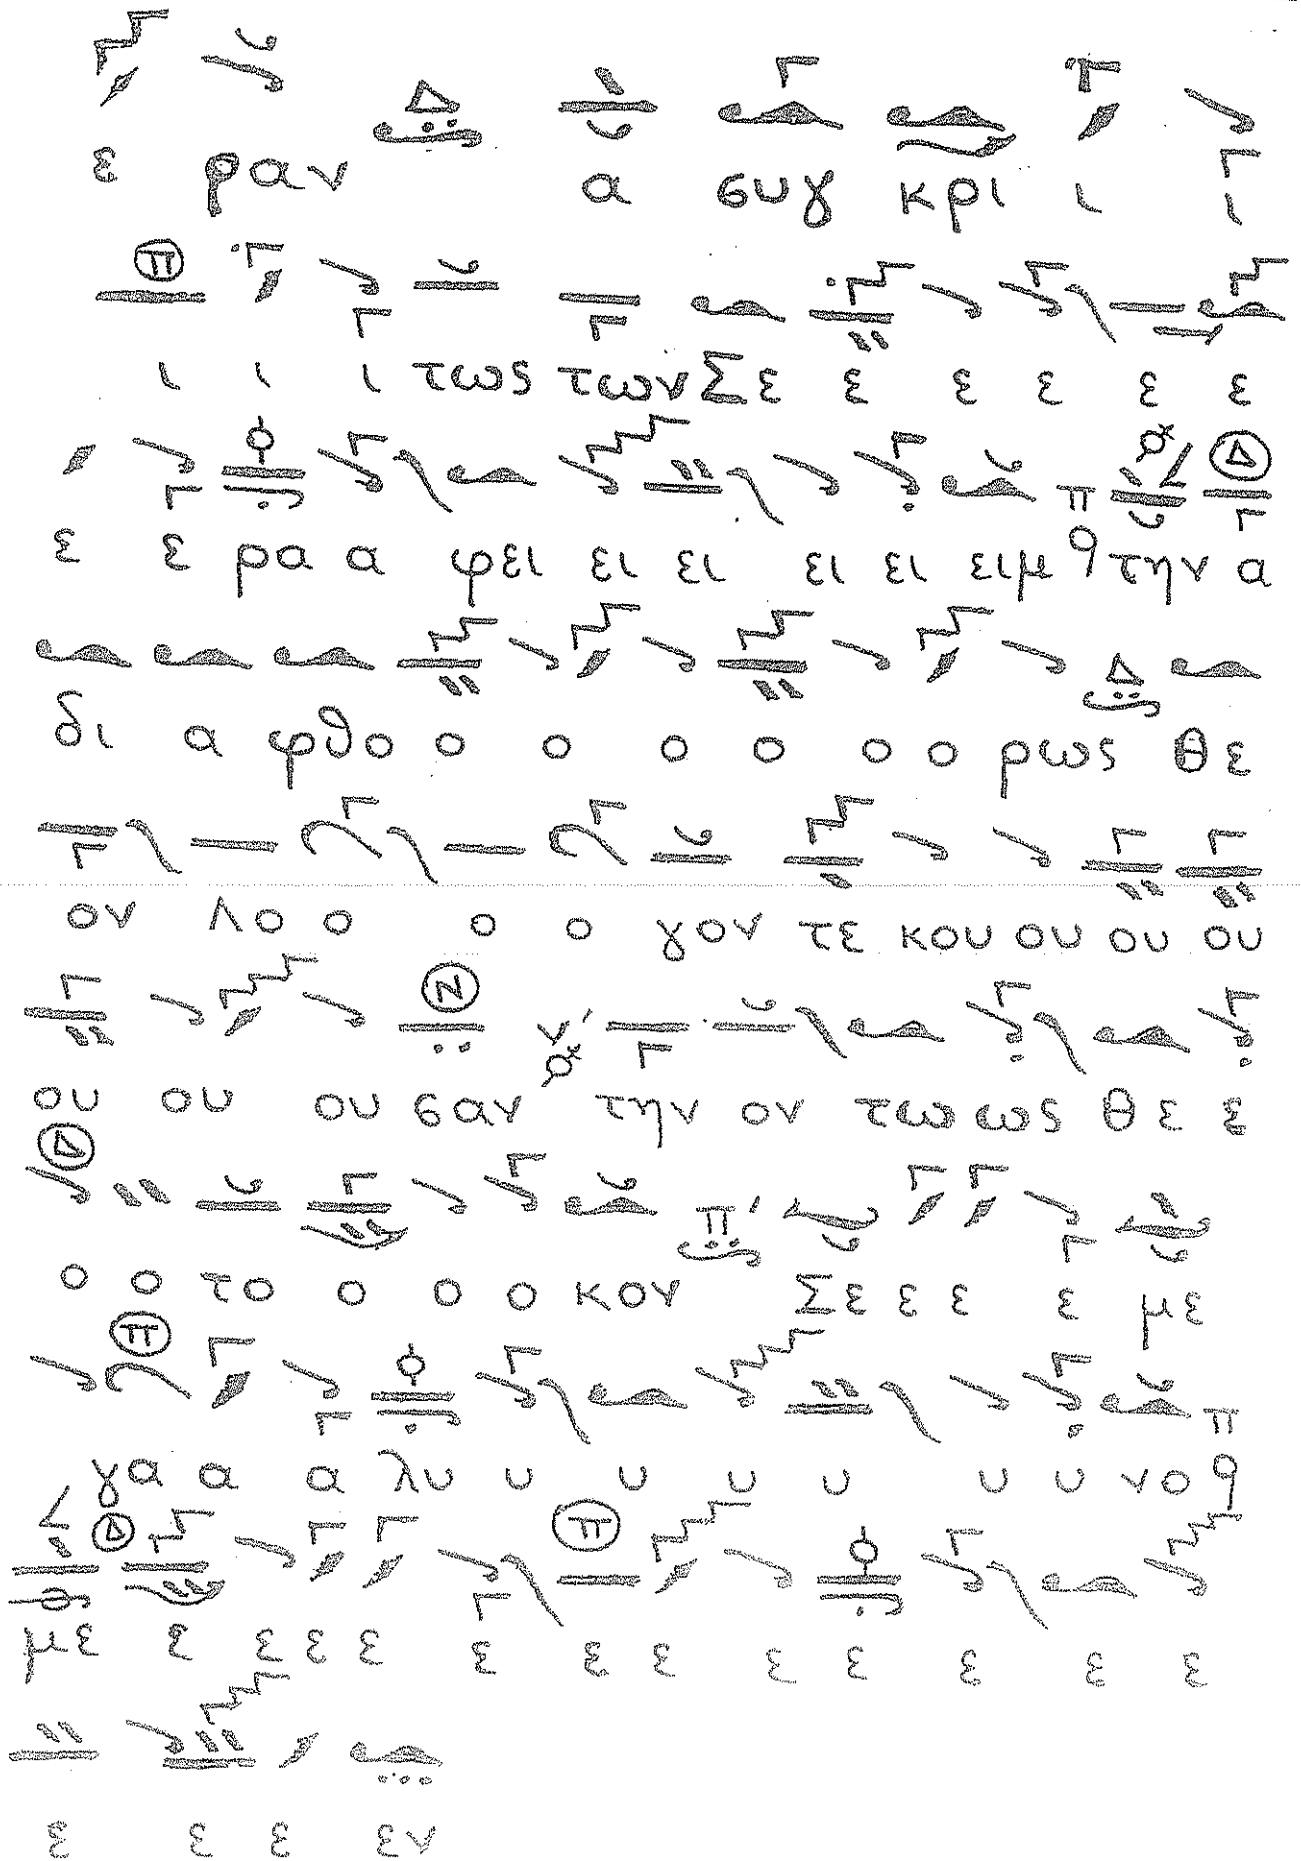 ε ραν α συγ κρι ι ι
ι ι ι τως των Σε ε ε ε ε ε
ε ε ρα α φει ει ει ει ει ειμ την α
δι α φθο ο ο ο ο ο ο ρως θε
ον λο ο ο ο γον τε κου ου ου ου
ου ου ου σαν την ον τω ως θε ε
ο ο το ο ο ο κον Σε ε ε ε με
γα α α λυ υ υ υ υ υ υ νο
με ε ε ε ε ε ε ε ε ε ε ε ε
ε ε ε εν